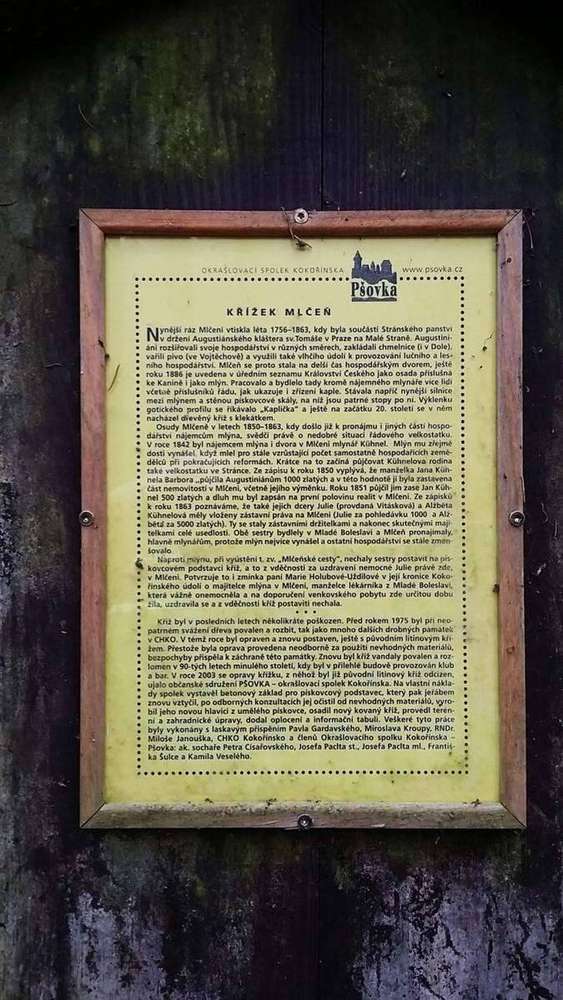 OKRAŠLOVACÍ SPOLEK KOKOŘÍNSKA
www.psovka.cz
Pšovka
KŘÍŽEK MLČEŇ
Nynější ráz Mlčeni vtiskla léta 1756–1863, kdy byla součástí Stránského panství
v držení Augustiánského kláštera sv.Tomáše v Praze na Malé Straně. Augustini-
áni rozšiřovali svoje hospodářství v různých směrech, zakládali chmelnice (i v Dole),
vařili pivo (ve Vojtěchově) a využili také vlhčího údolí k provozování lučního a les-
ního hospodářství. Mlčeň se proto stala na delší čas hospodářským dvorem, ještě
roku 1886 je uvedena v úředním seznamu Království Českého jako osada příslušná
ke Kanině i jako mlýn. Pracovalo a bydlelo tady kromě nájemného mlynáře více lidí
včetně příslušníků řádu, jak ukazuje i zřízení kaple. Stávala napříč nynější silnice
mezi mlýnem a stěnou pískovcové skály, na níž jsou patrné stopy po ní. Výklenku
gotického profilu se říkávalo „Kaplička" a ještě na začátku 20. století se v něm
nacházel dřevěný kříž s klekátkem.
Osudy Mlčeně v letech 1850–1863, kdy došlo již k pronájmu i jiných částí hospo-
dářství nájemcům mlýna, svědčí právě o nedobré situaci řádového velkostatku.
V roce 1842 byl nájemcem mlýna i dvora v Mlčeni mlynář Kühnel. Mlýn mu zřejmě
dosti vynášel, když mlel pro stále vzrůstající počet samostatně hospodařících země-
dělců při pokračujících reformách. Krátce na to začíná půjčovat Kühnelova rodina
také velkostatku ve Stránce. Ze zápisu k roku 1850 vyplývá, že manželka Jana Küh-
nela Barbora „půjčila Augustiánům 1000 zlatých a v této hodnotě jí byla zastavena
část nemovitostí v Mlčeni, včetně jejího výměnku. Roku 1851 půjčil jim zase Jan Küh-
nel 500 zlatých a dluh mu byl zapsán na první polovinu realit v Mlčeni. Ze zápisků
k roku 1863 poznáváme, že také jejich dcery Julie (provdaná Vitásková) a Alžběta
Kühnelová měly vloženy zástavní práva na Mlčeni (Julie za pohledávku 1000 a Alž-
běta za 5000 zlatých). Ty se staly zástavními držitelkami a nakonec skutečnými maji-
telkami celé usedlosti. Obě sestry bydlely v Mladé Boleslavi a Mlčeň pronajímaly,
hlavně mlynářům, protože mlýn nejvíce vynášel a ostatní hospodářství se stále zmen-
šovalo.
Naproti mlýnu, při vyústění t. zv. „Mlčeňské cesty", nechaly sestry postavit na pís-
kovcovém podstavci kříž, a to z vděčnosti za uzdravení nemocné Julie právě zde,
v Mlčeni. Potvrzuje to i zmínka paní Marie Holubové-Uždilové v její kronice Koko-
řínského údolí o majitelce mlýna v Mlčeni, manželce lékárníka z Mladé Boleslavi,
která vážně onemocněla a na doporučení venkovského pobytu zde určitou dobu
žila, uzdravila se a z vděčnosti kříž postaviti nechala.
• • •
Kříž byl v posledních letech několikráte poškozen. Před rokem 1975 byl při neo-
patrném svážení dřeva povalen a rozbit, tak jako mnoho dalších drobných památek
v CHKO. V témž roce byl opraven a znovu postaven, ještě s původním litinovým kří-
žem. Přestože byla oprava provedena neodborně za použití nevhodných materiálů,
bezpochyby přispěla k záchraně této památky. Znovu byl kříž vandaly povalen a roz-
lomen v 90-tých letech minulého století, kdy byl v přilehlé budově provozován klub
a bar. V roce 2003 se opravy křížku, z něhož byl již původní litinový kříž odcizen,
ujalo občanské sdružení PŠOVKA – okrašlovací spolek Kokořínska. Na vlastní nákla-
dy spolek vystavěl betonový základ pro pískovcový podstavec, který pak jeřábem
znovu vztyčil, po odborných konzultacích jej očistil od nevhodných materiálů, vyro-
bil jeho novou hlavici z umělého pískovce, osadil nový kovaný kříž, provedl terén-
ní a zahradnické úpravy, dodal oplocení a informační tabuli. Veškeré tyto práce
byly vykonány s laskavým přispěním Pavla Gardavského, Miroslava Kroupy, RNDr.
Miloše Janouška, CHKO Kokořínsko a členů Okrašlovacího spolku Kokořínska –
Pšovka: ak. sochaře Petra Císařovského, Josefa Paclta st., Josefa Paclta ml., Františ-
ka Šulce a Kamila Veselého.